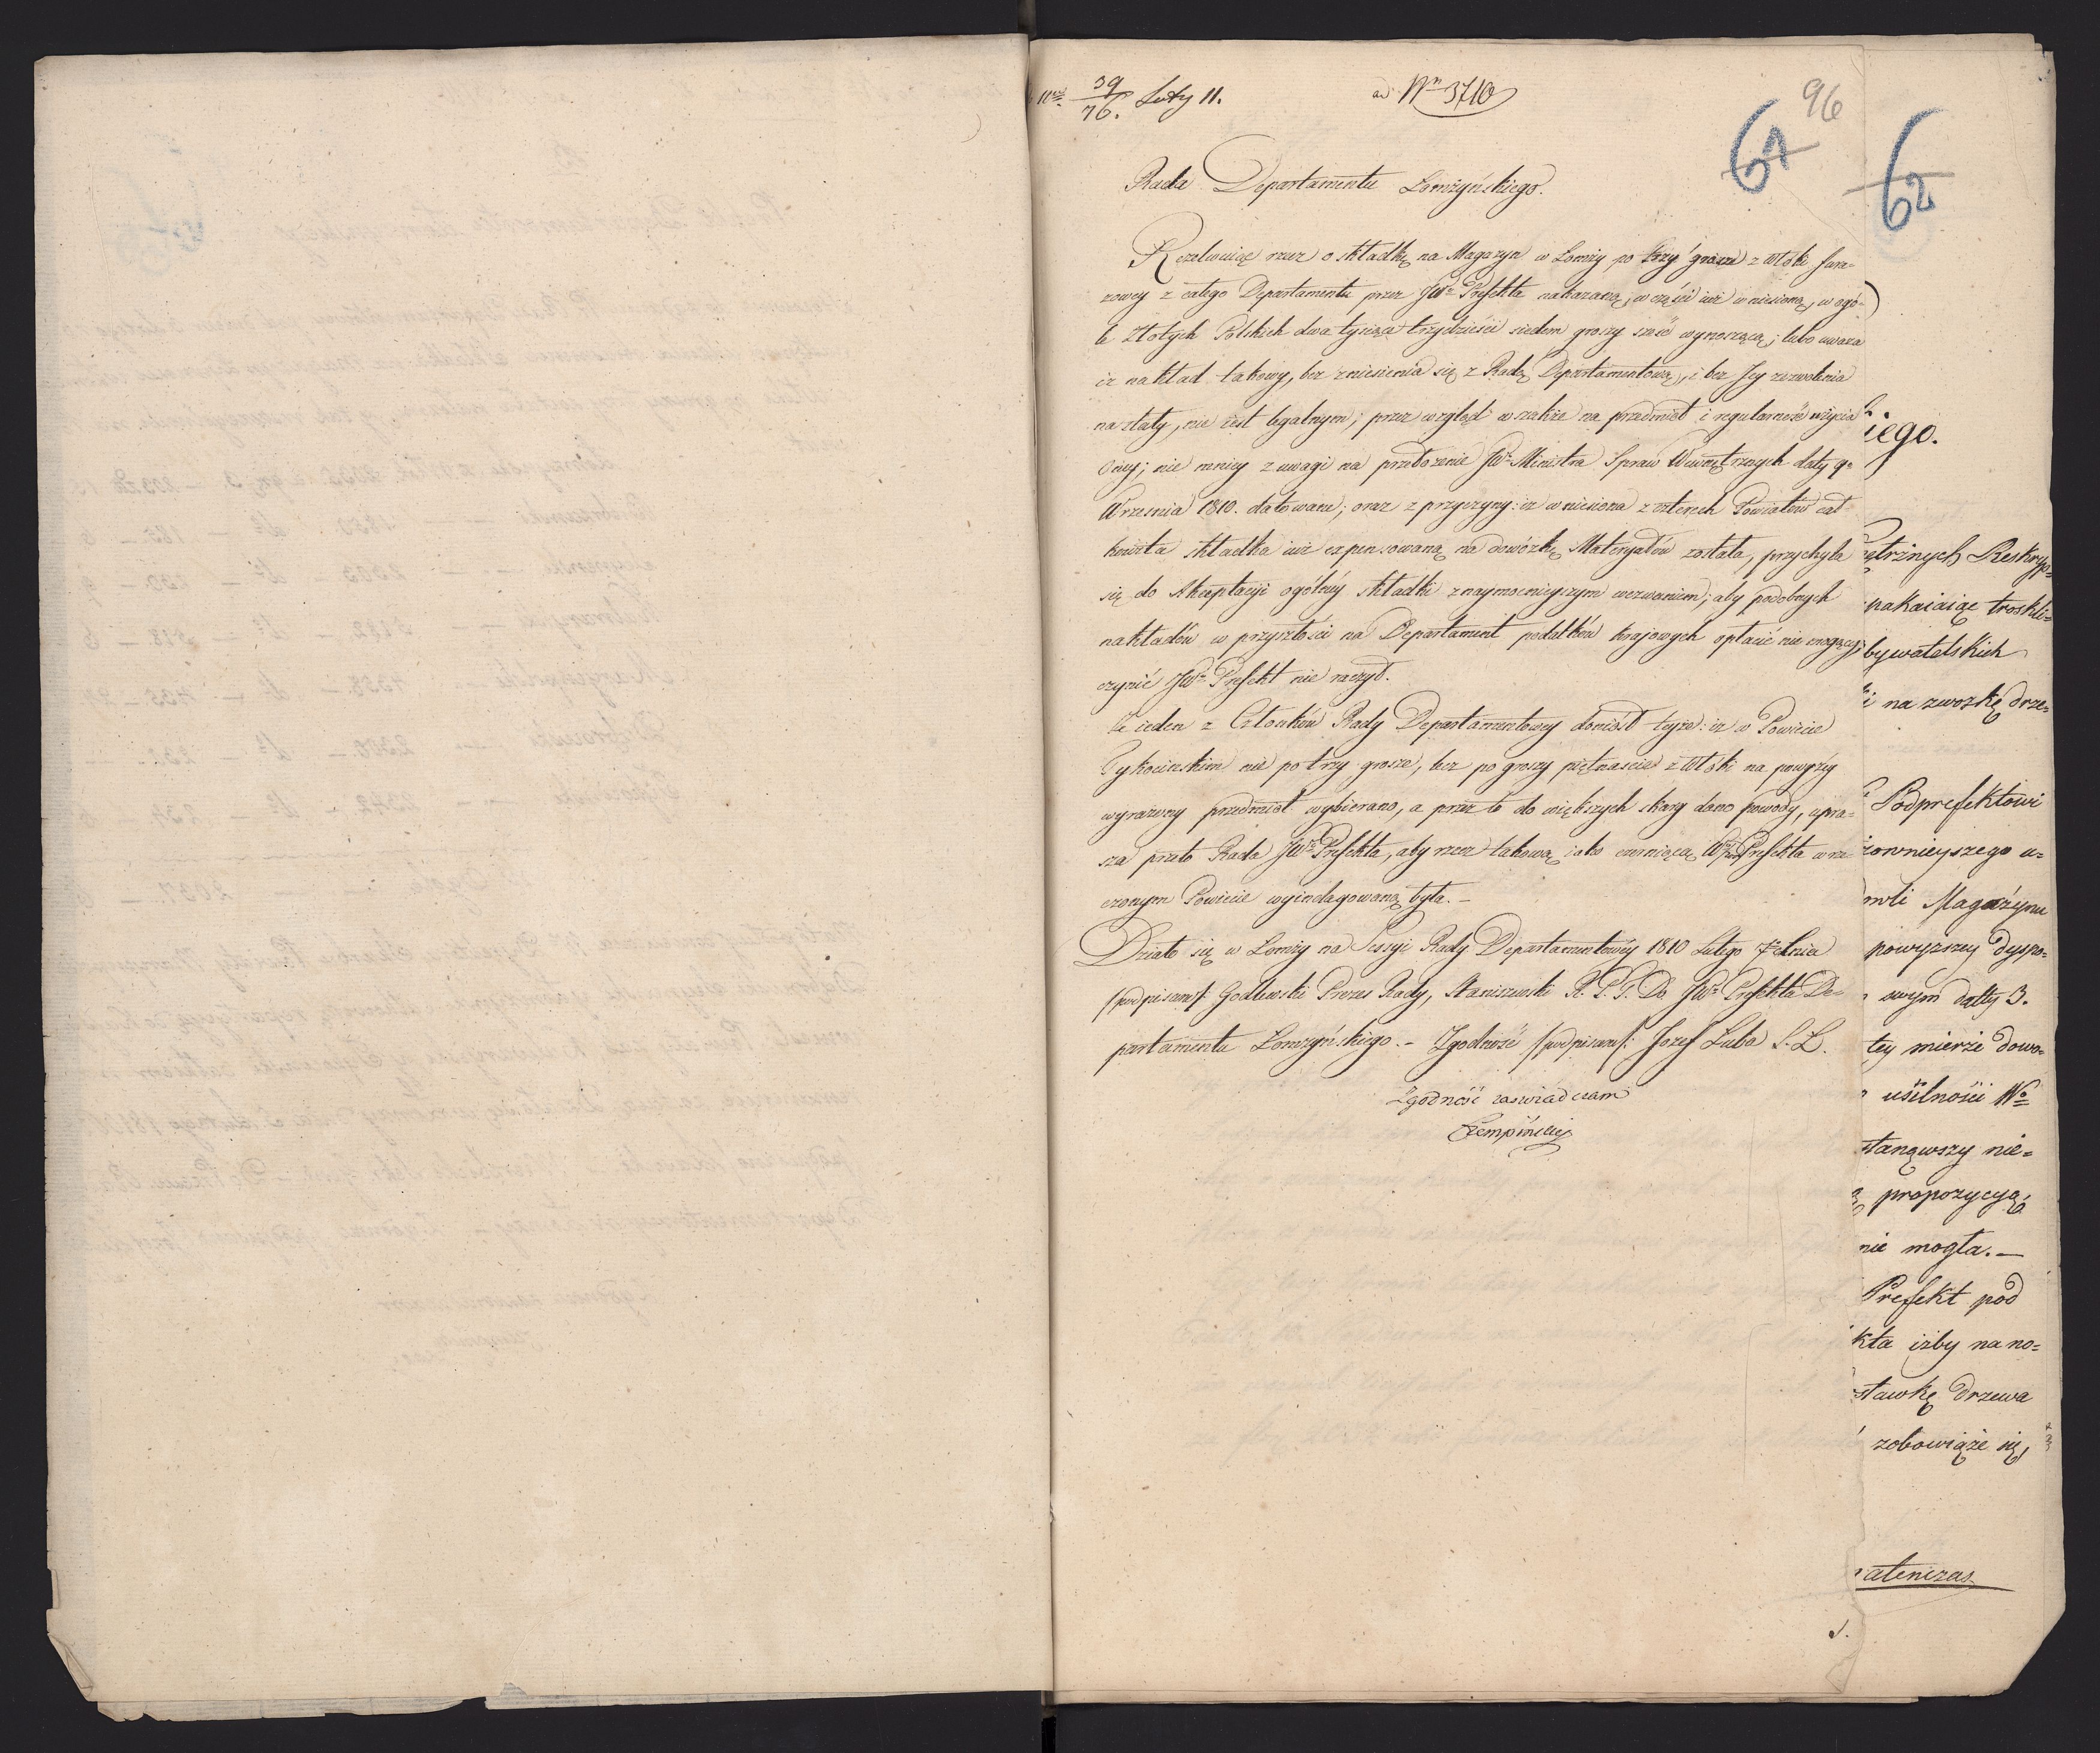 39/76. Luty 11.
ad Nrm 3710
96
61
62
Rada Departamentu Łomżyńskiego.
rzecz o składkę na Magazyn w Łomży po trzy grosze z Włóki fura=
zowey z całego Departamentu przez JWo Prefekta nakazaną, w części iuż wniesioną, w ogó=
le Złotych Polskich dwa tysiąca trzydzieści siedem groszy sześć wynoszącą; lubo uważa
iż nakład takowy, bez zniesienia się z Radą Departamentową, i bez Jey zezwolenia
nastały, nie iest legalnym; przez wzgląd wszakże na przedmiot i regularność użycia
oney; nie mniey z uwagi na przełożenie JWo Ministra Spraw Wewnętrznych daty 9o
Września 1810. datowane; oraz z przyczyny: iż wniesiona z czterech Powiatów cał
kowita składka iuż expensowaną na dowózkę Materyałów została, przychyla
się do Akceptacyi ogólney składki z naymocnieyszym wezwaniem; aby podobnych
nakładów w przyszłości na Departament podatków krajowych opłacić nie mogący,
czynić JWo Prefekt nie raczył.
Że ieden z Członków Rady Departamentowey doniósł teyże: iż w Powiecie
Tykocinskim nie po trzy grosze, lecz po groszy piętnascie z Włóki na powyżey
wyrażony przedmiot wybierano, a przez to do większych skarg dano powody, upra=
sza przeto Rada JWo Prefekta, aby rzecz takową iako czerniącą Podprefekta w rze=
czonym Powiecie wyindagowaną była. –
Działo się w Łomży na Sessyi Rady Departamentowey 1810 Lutego 7o dnia
/podpisano/: Godlewski Prezes Rady, Staniszewski R. P. G. Do JWo Prefekta De=
partamentu Łomżyńskiego. – Zgodność /podpisano/: Jozef Luba S. L.
Zgodność zaswiadczam
iego.
ętrznych Reskryp=
pakaiaiąc troskli=
bywatelskich
i na zwozkę drze=
Podprefektowi
zownieyszego u=
Magazynu
powyższey dyspo=
swym datty 3.
tey mierze dowo=
usilności Wo
stanąwszy nie=
propozycyą
nie mogła. –
Prefekt pod
kta iżby na no=
stawkę drzewa
zobowiąże się,
natenczas